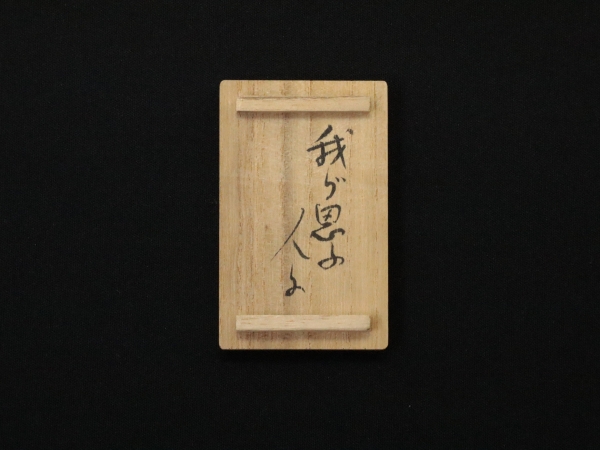 我が思ふ
人は